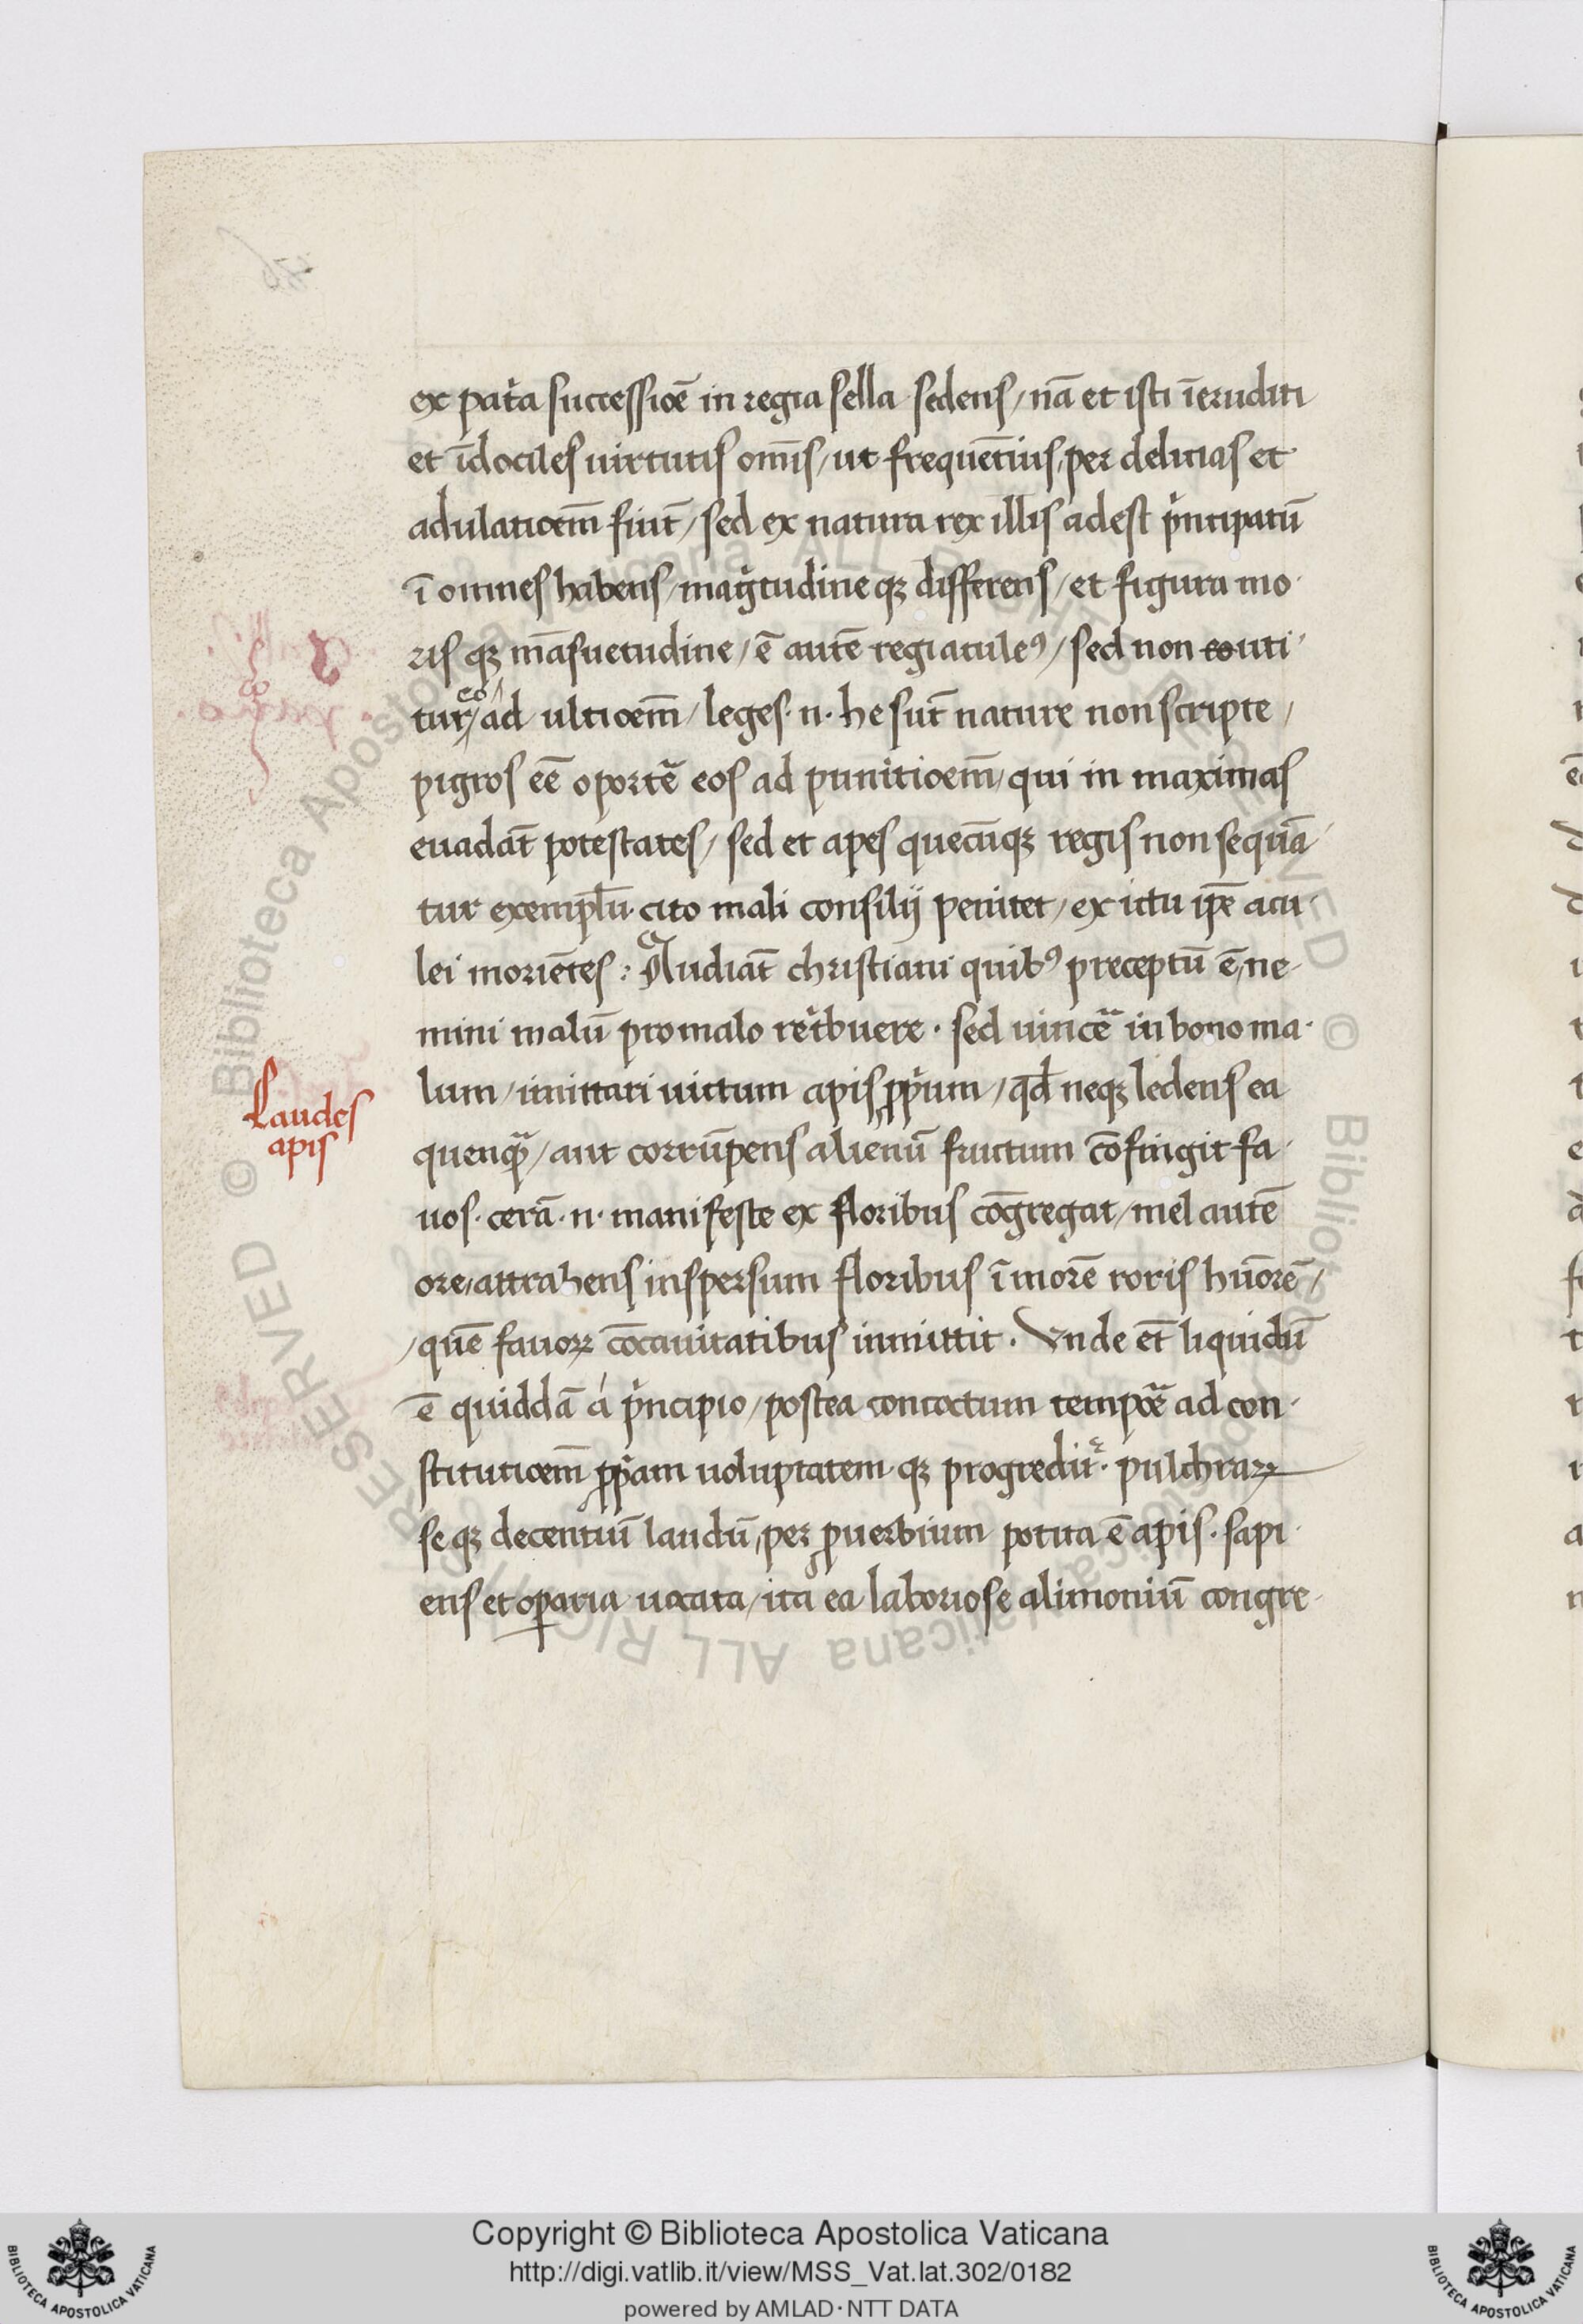 ex pat͛ia successioē in regia sella sedens / nā et isti īeruditi
et īdociles uirtutis om̄is / ut frequētius, per delicias et
adulatioem̄ fiūt / sed ex natura rex illis adest pͥncipatū
ī omnes habens / magͥtudine qꝫ differens / et figura mo·
ris qꝫ māsuetudine / ē autē regi aculeꝰ / sed non eo uti·
tur eo / ad ultioem̄ / leges · n · he sūt nature non scripte /
pigros eē oportē eos ad punitioem̄ / qui in maximas
euadāt potestates / sed et apes quecūqꝫ regis non sequā
tur exemplū · cito mali consilij penitet / ex ictu ip̄e acu·
lei moriētes : Audiāt christiani quibꝰ preceptū ē, ne·
mini malū pro malo retͥbuere · sed uincē in bono ma·
lum / imittari uictum apis ꝓpͥum / qđ neqꝫ ledens ea
quenqᷓ / aut corrūpens alienū fructum cōfingit fa·
Laudes
apis
uos · cerā · n · manifeste ex floribus cōgregat / mel autē
ore / attrahens inspersum floribus ī morē roris hūorē /
/ quē fauoꝝ cōcauitatibus inmittit · Vnde et̄ liquidū
ē quiddā á pͥncipio / postea concoctum tempoē ad con·
stitutioem̄ ꝓpͥam uoluptatem qꝫ progredit͛ · pulchraꝝ
se qꝫ decentiū laudū, per ꝓuerbium potita ē apis · sapi·
ens et oꝑaria uocata / ita ea laboriose alimoniū congre·
Copyright © Biblioteca Apostolica Vaticana
http://digi.vatlib.it/view/MSS_Vat.lat.302/0182
powered by AMLAD · NTT DATA